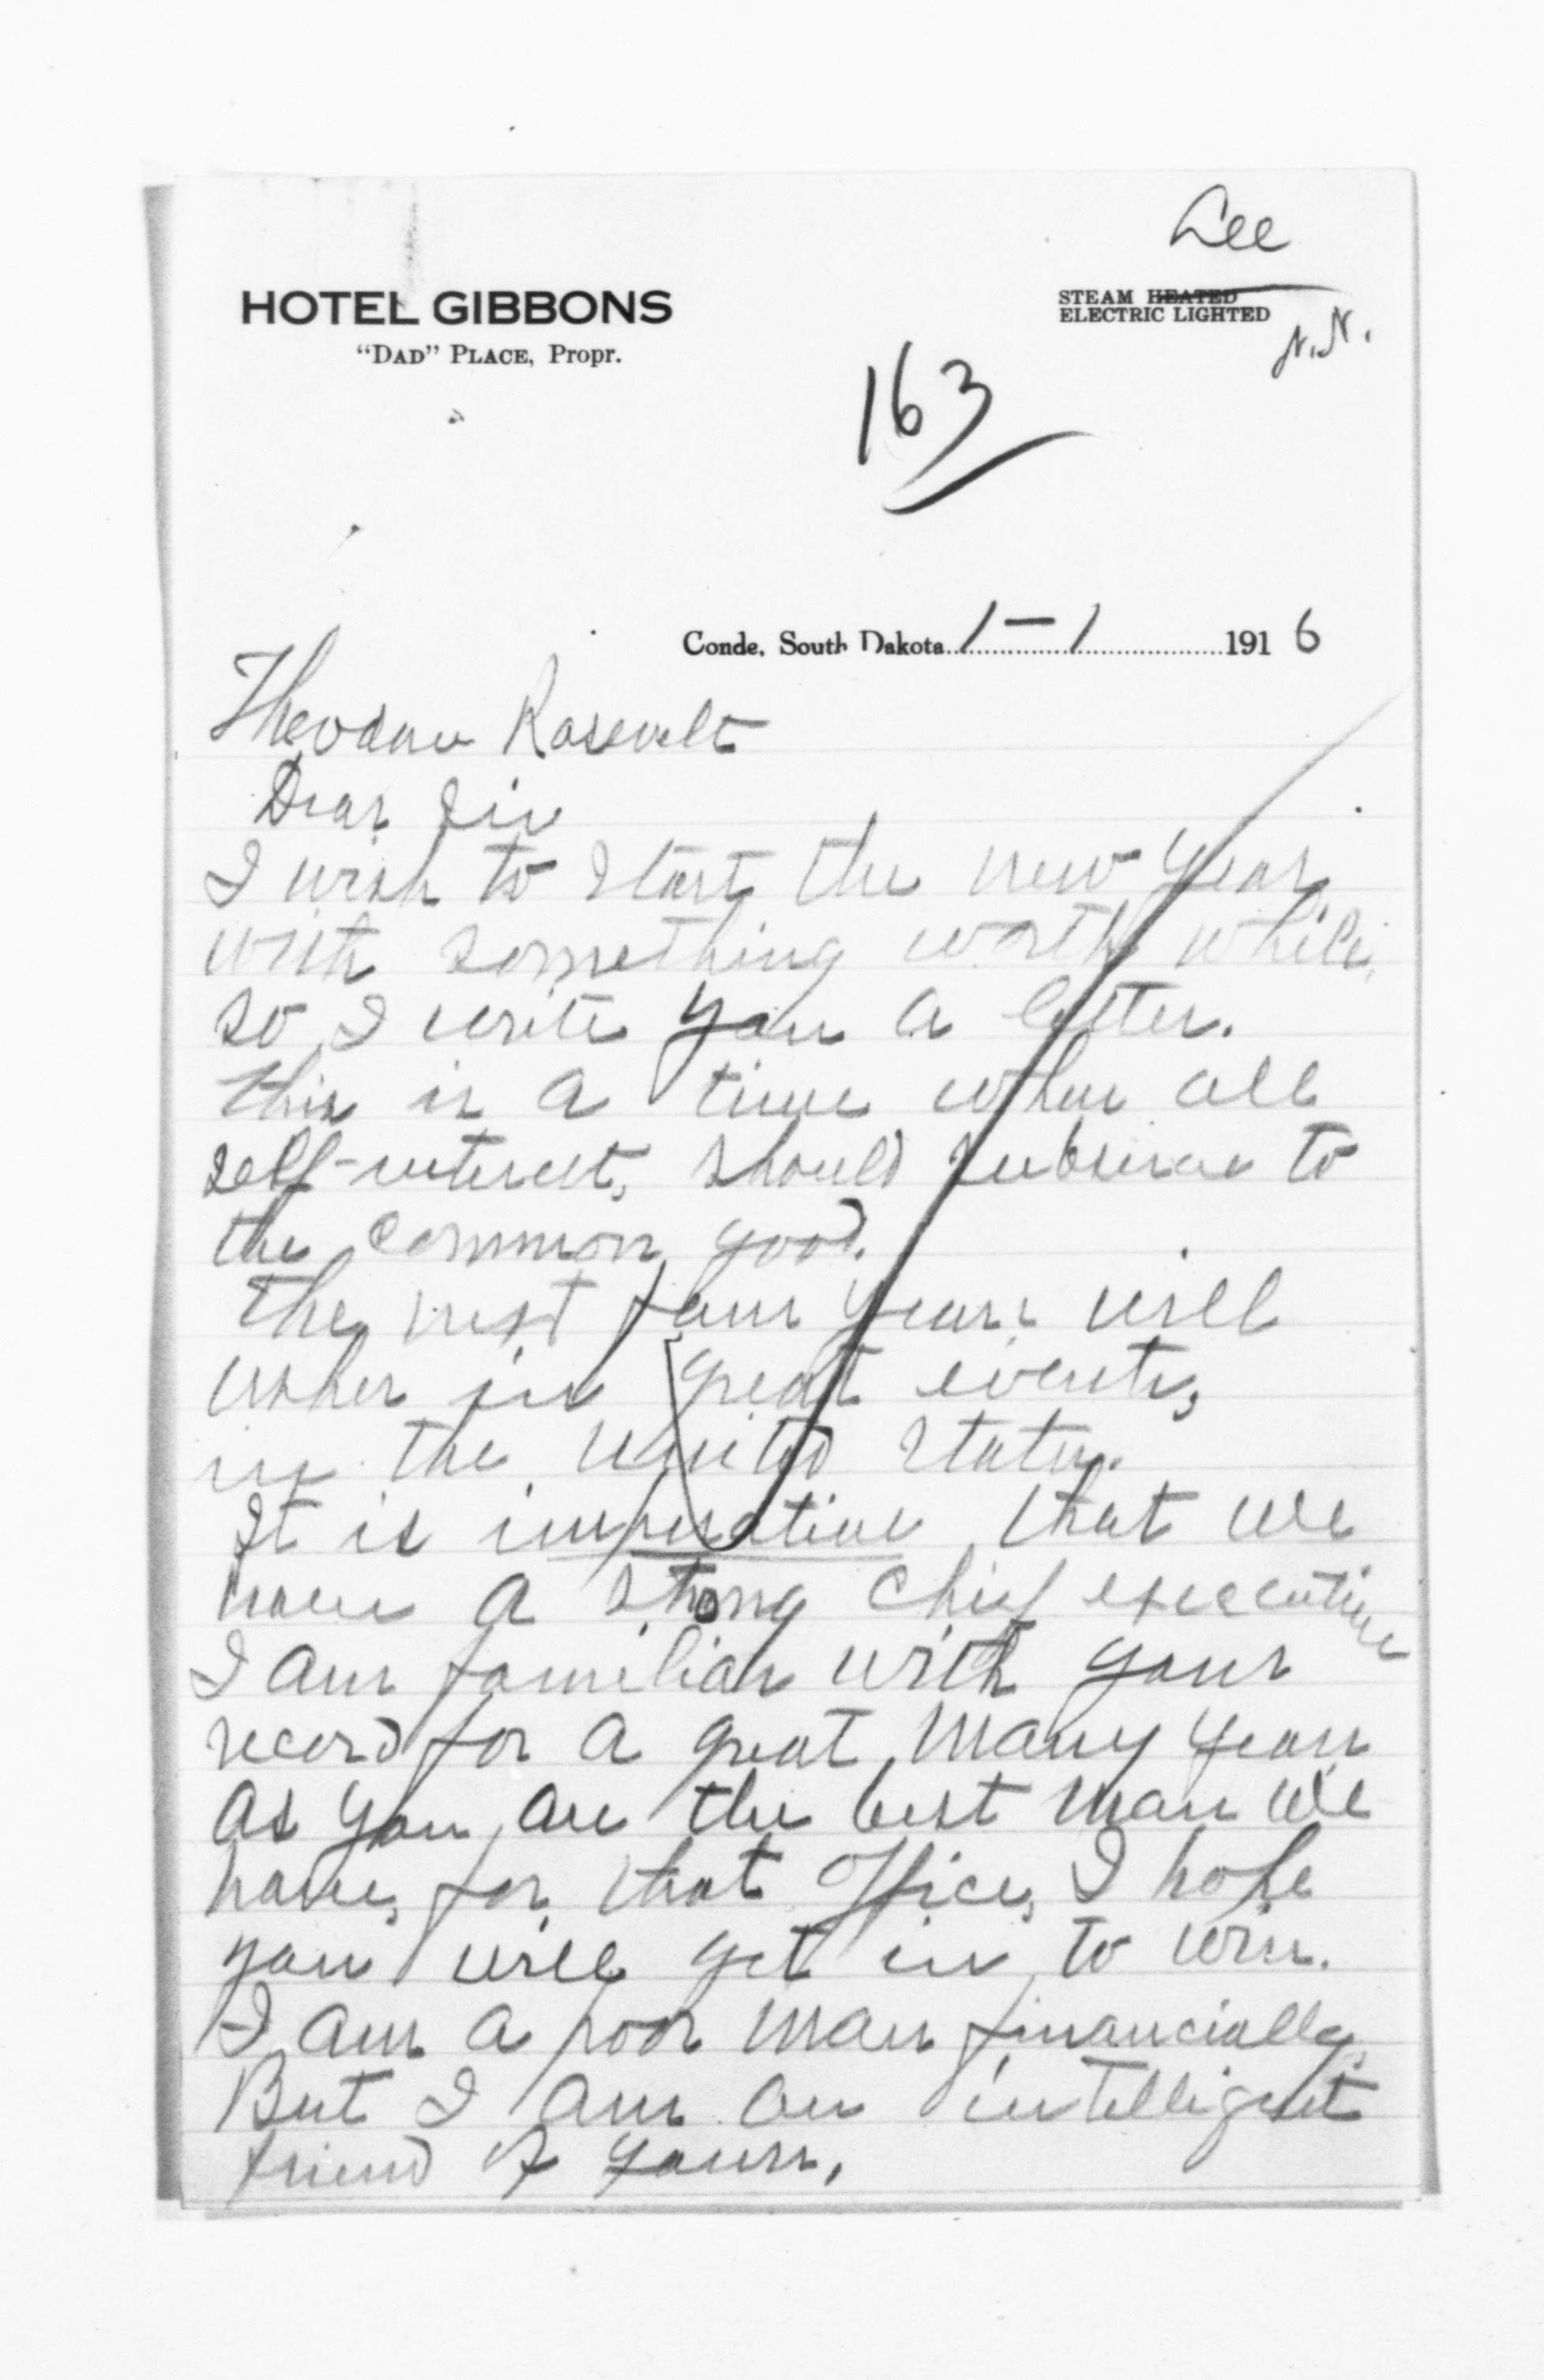 Lee
HOTEL GIBBONS
"DAD" PLACE, Propr.
STEAM HEATED
ELECTRIC LIGHTED
N.N.
163
Conde, South Dakota 1-1 1916
Theodore Rosevelt
Dear Sir
I wish to start the new year
with something worth while,
so I write you a letter.
this is a time when all
self-interest, should to
the common good.
The next four years will
usher in great events,
in the United States.
It is imperative that we
have a strong chief executive
I am familiar with your
record for a great many years
As you are the best man we
have, for that office, I hope
you will get in to win.
I am a poor man financially,
But I am an intelligent
friend of yours,